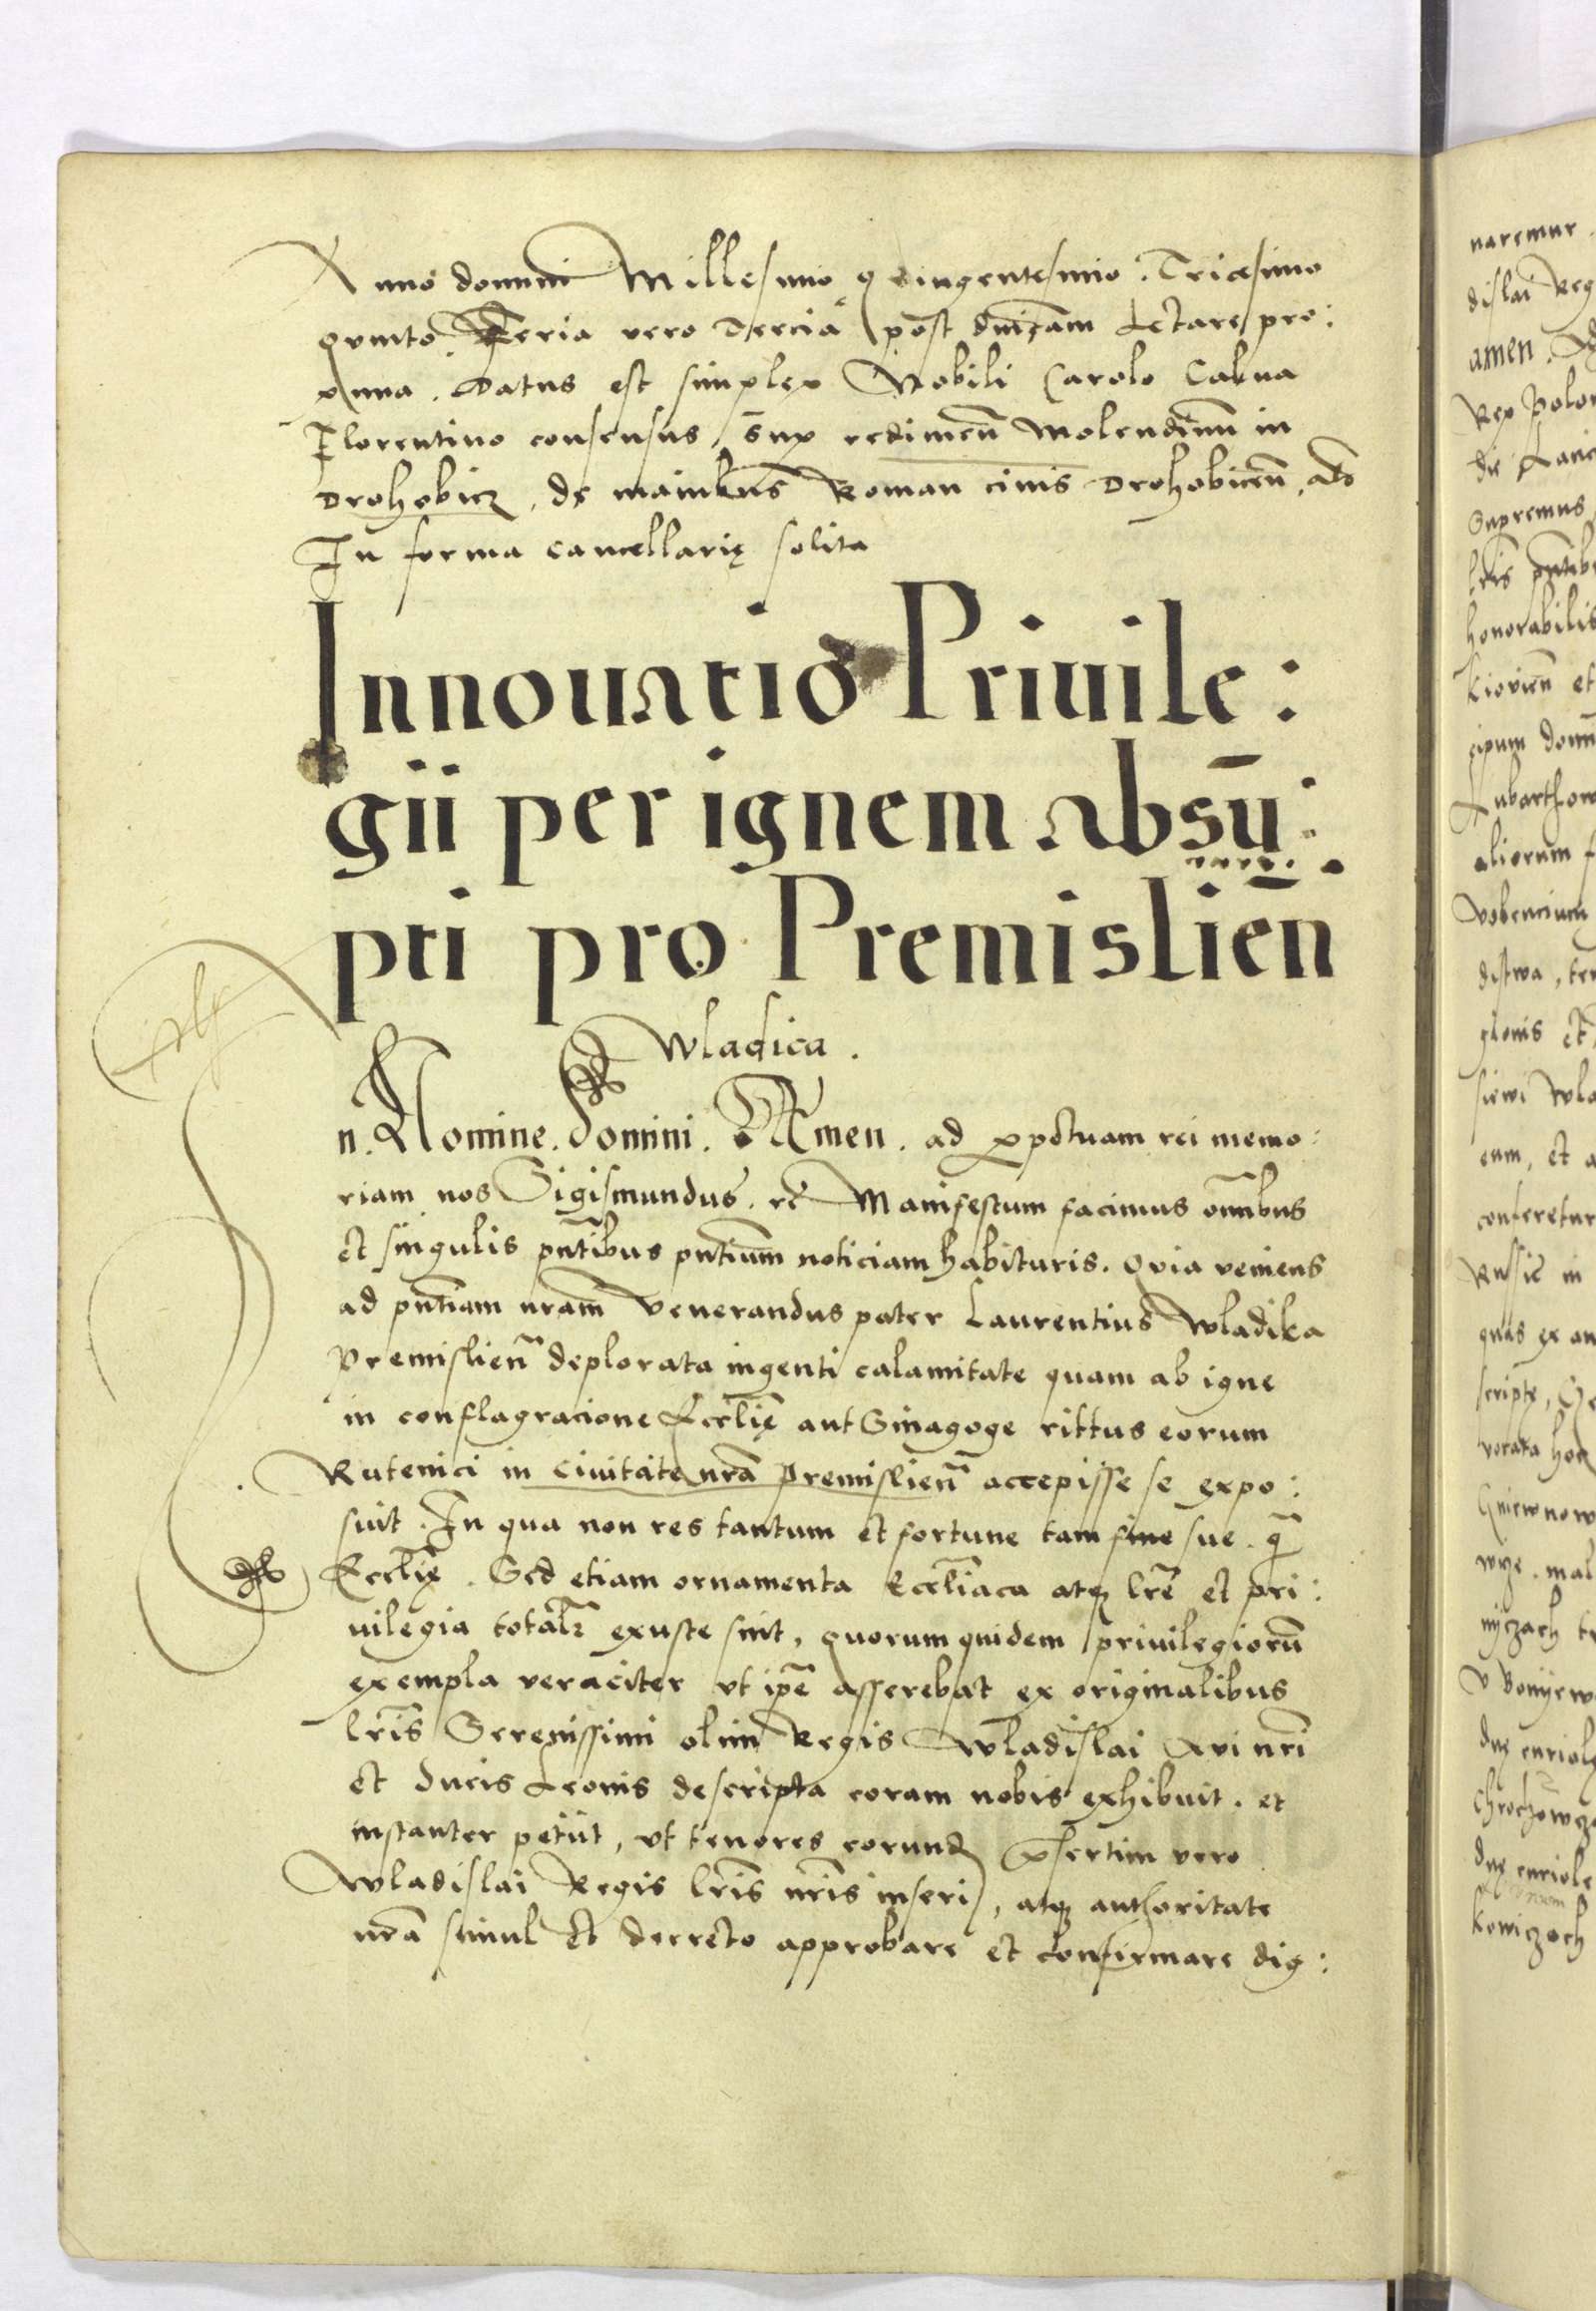 Anno domini Millesimo quingentesimo Tricesimo
quinto. Feria vero Tercia post dnicam Letare pro:
xima. Datus est simplex Nobili Carolo Calvua
Florentino consensus, sup redimen Molendinu in
Drohobicz, de manibus Roman civis Drohobicen,
In forma cancellarię solita
Innouatio Priuile:
gii per ignem absū:
pti pro Premislien̄
Wladica.
n. Nomine. Domini. Amen. ad perpetuam rei memo:
riam nos Sigismundus. rc Manifestum facimus omnibus
et singulis pntibus pntium noticiam habituris. Quia veniens
ad pntiam nram Venerandus pater Laurentius Wladika
Premislien deplorata ingenti calamitate quam ab igne
in conflagracione Ecclie aut Sinagoge rittus eorum
Rutenici in Ciuitate nra Premislien accepisse se expo:
suit. In qua non res tantum et fortune tam sue. q̄
Ecclię. Sed etiam ornamenta Eccliaca atq lre et pri:
uilegia totalr exuste sint, quorum quidem priuilegioru
exempla veraciter vt ipe asserebat ex originalibus
lris Serenissimi olim Regis Wladislai Aui nri
et Ducis Leonis descripta coram nobis exhibuit. et
instanter petiit, vt tenores eorund psertim vero
Wladislai Regis lris nris inseri, atq authoritate
nra simul et decreto approbare et confirmare dig:
naremur.
dislai Reg
amen.
Rex Polon
Supremus
lris pntib
honorabilis
kiovien et
cipum
Lubarthow
aliorum
distwa, ter
siewi Wla
eum, et a
conferetur
Russie in
quas ex an
scripte,
Gniewnow
kowiczoch